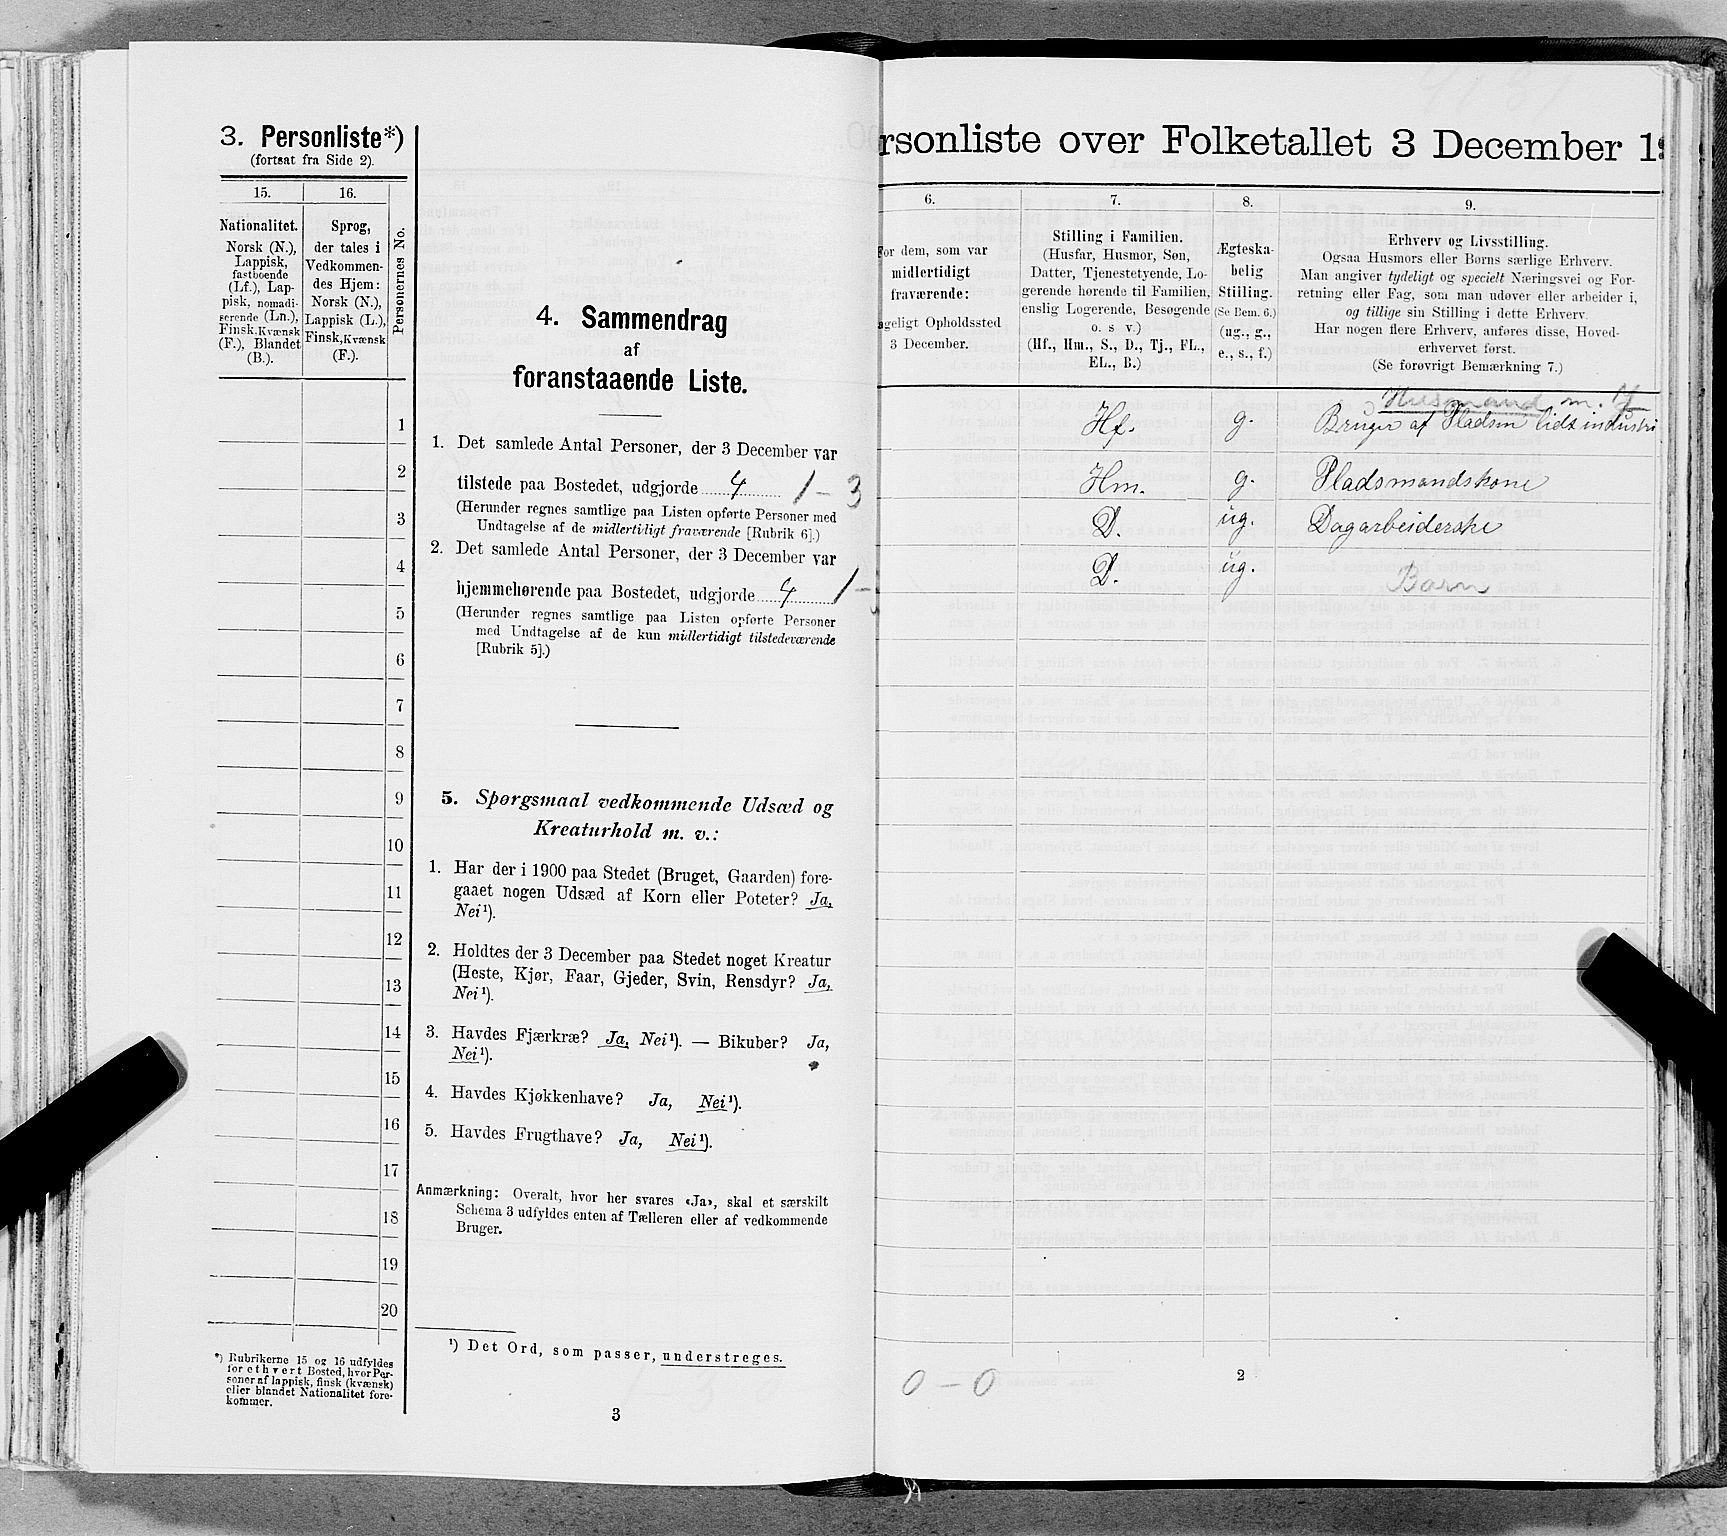 3. Personliste*)
(fortsat fra Side 2).
15.
16.
Personernes No.
Nationalitet.
Norsk (N.),
Lappisk,
fastboende
(Lf.), Lap-
pisk, nomadi-
serende (Ln.),
Finsk, Kvænsk
(F.), Blandet
(B.).
Sprog,
der tales i
Vedkommen-
des Hjem:
Norsk (N.),
Lappisk (L.),
Finsk, Kvænsk
(F.).
1
2
3
4
5
6
7
8
9
10
11
12
13
14
15
16
17
18
19
20
*) Rubrikerne 15 og 16 udfyldes
for ethvert Bosted, hvor Per-
soner af lappisk, finsk (kvænsk)
eller blandet Nationalitet fore-
kommer.
4. Sammendrag
af
foranstaaende Liste.
1. Det samlede Antal Personer, der 3 December var
tilstede paa Bostedet, udgjorde 4 1-3
(Herunder regnes samtlige paa Listen opførte Personer med
Undtagelse af de midlertidigt fraværende [Rubrik 6].)
2. Det samlede Antal Personer, der 3 December var
hjemmehørende paa Bostedet, udgjorde 4 1-
(Herunder regnes samtlige paa Listen opførte Personer
med Undtagelse af de kun midlertidigt tilstedeværende
[Rubrik 5].)
5. Spørgsmaal vedkommende Udsæd og
Kreaturhold m. v.:
1. Har der i 1900 paa Stedet (Bruget, Gaarden) fore-
gaaet nogen Udsæd af Korn eller Poteter? Ja,
Nei¹).
2. Holdtes der 3 December paa Stedet noget Kreatur
(Heste, Kjør, Faar, Gjeder, Svin, Rensdyr? Ja,
Nei¹).
3. Havdes Fjærkræ? Ja, Nei¹). — Bikuber? Ja,
Nei¹).
4. Havdes Kjøkkenhave? Ja, Nei¹).
5. Havdes Frugthave? Ja, Nei¹).
Anmærkning: Overalt, hvor her svares «Ja», skal et særskilt
Schema 3 udfyldes enten af Tælleren eller af vedkommende
Bruger.
¹) Det Ord, som passer, understreges.
3
rsonliste over Folketallet 3 December 1
6.
7.
8.
9.
For dem, som var
midlertidigt
fraværende:
ageligt Opholdssted
3 December.
Stilling i Familien.
(Husfar, Husmor, Søn,
Datter, Tjenestetyende, Lo-
gerende hørende til Familien,
enslig Logerende, Besøgende
o. s v.)
(Hf., Hm., S., D., Tj., FL.,
EL., B.)
Ægteska-
belig
Stilling.
(Se Bem. 6.)
(ug., g.,
e., s., f.)
Erhverv og Livsstilling.
Ogsaa Husmors eller Børns særlige Erhverv.
Man angiver tydeligt og specielt Næringsvei og For-
retning eller Fag, som man udøver eller arbeider i,
og tillige sin Stilling i dette Erhverv.
Har nogen flere Erhverv, anføres disse, Hoved-
erhvervet først.
(Se forøvrigt Bemærkning 7.)
Husmand m. J
Hf. g. Bruger af Pladsen lidt industri
Hm. g. Pladsmandskone
D. ug. Dagarbeiderske
D. ug. Barn
0-0
2